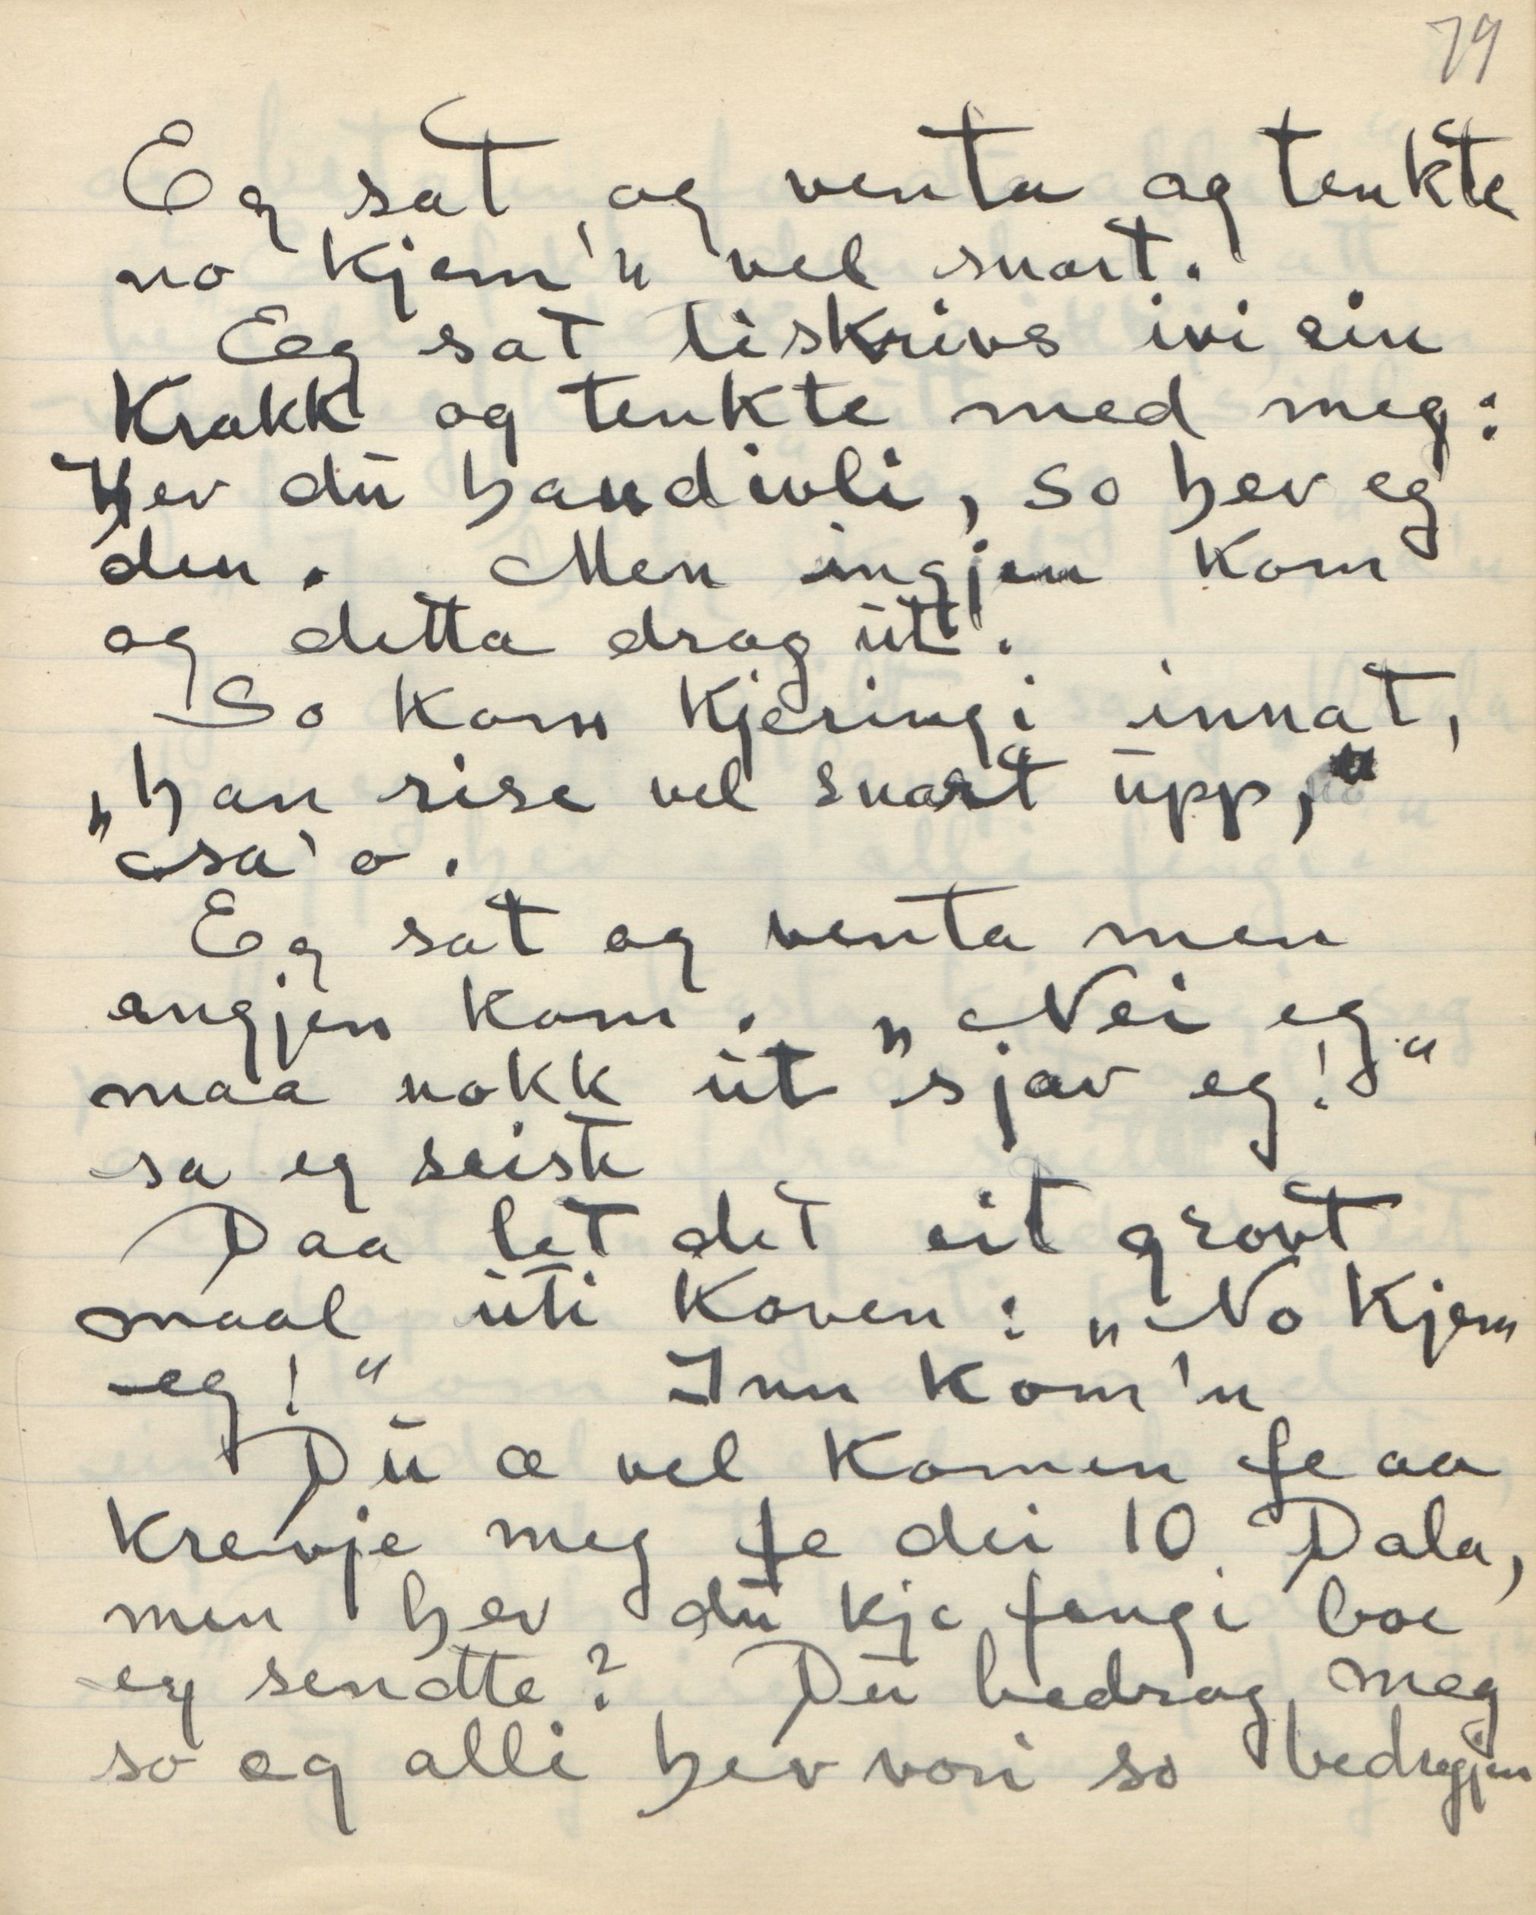 79
Eg sat og venta og tenkte
no kjem'n vel snart.
Eg sat tiskrivs ivi ein
Krakk og tenkte med meg:
Hev du handivli, so hev eg
den. Men ingjen kom
og detta drog ut.
So kom kjeringi innat,
„han rise vel snart upp,"
sa' o.
Eg sat og venta men
engjen kom. „Nei eg
maa nokk ut sjav eg!"
sa eg seiste
Daa let det eit grovt
maal uti Koven: „No kjem
eg!" Inn kom'n
Du æ vel komen fe aa
krevje meg fe dei 10 Dala,
men hev du kje fengi boe
eg sendte? Du bedrog meg
so eg alli hev vori so bedregjen